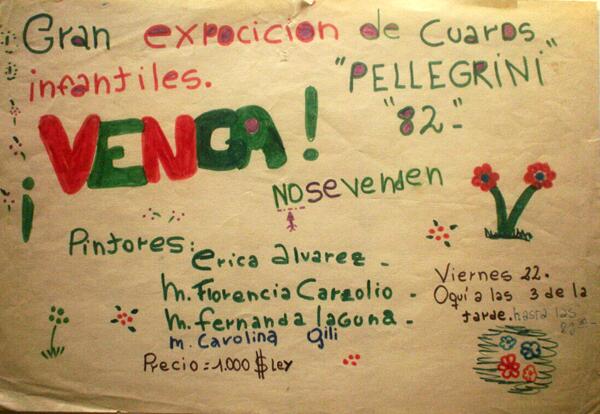 ¡Gran expocicion de Cuaros
infantiles. "PELLEGRINI"
"82"-
¡VENGA!
NO se venden
Pintores: erica alvarez -
m. Florencia Carzolio -
m. fernanda laguna -
m. Carolina gili
Precio = 1.000 $ ley
Viernes 22.
Oquí a las 3 de la
tarde. hasta las